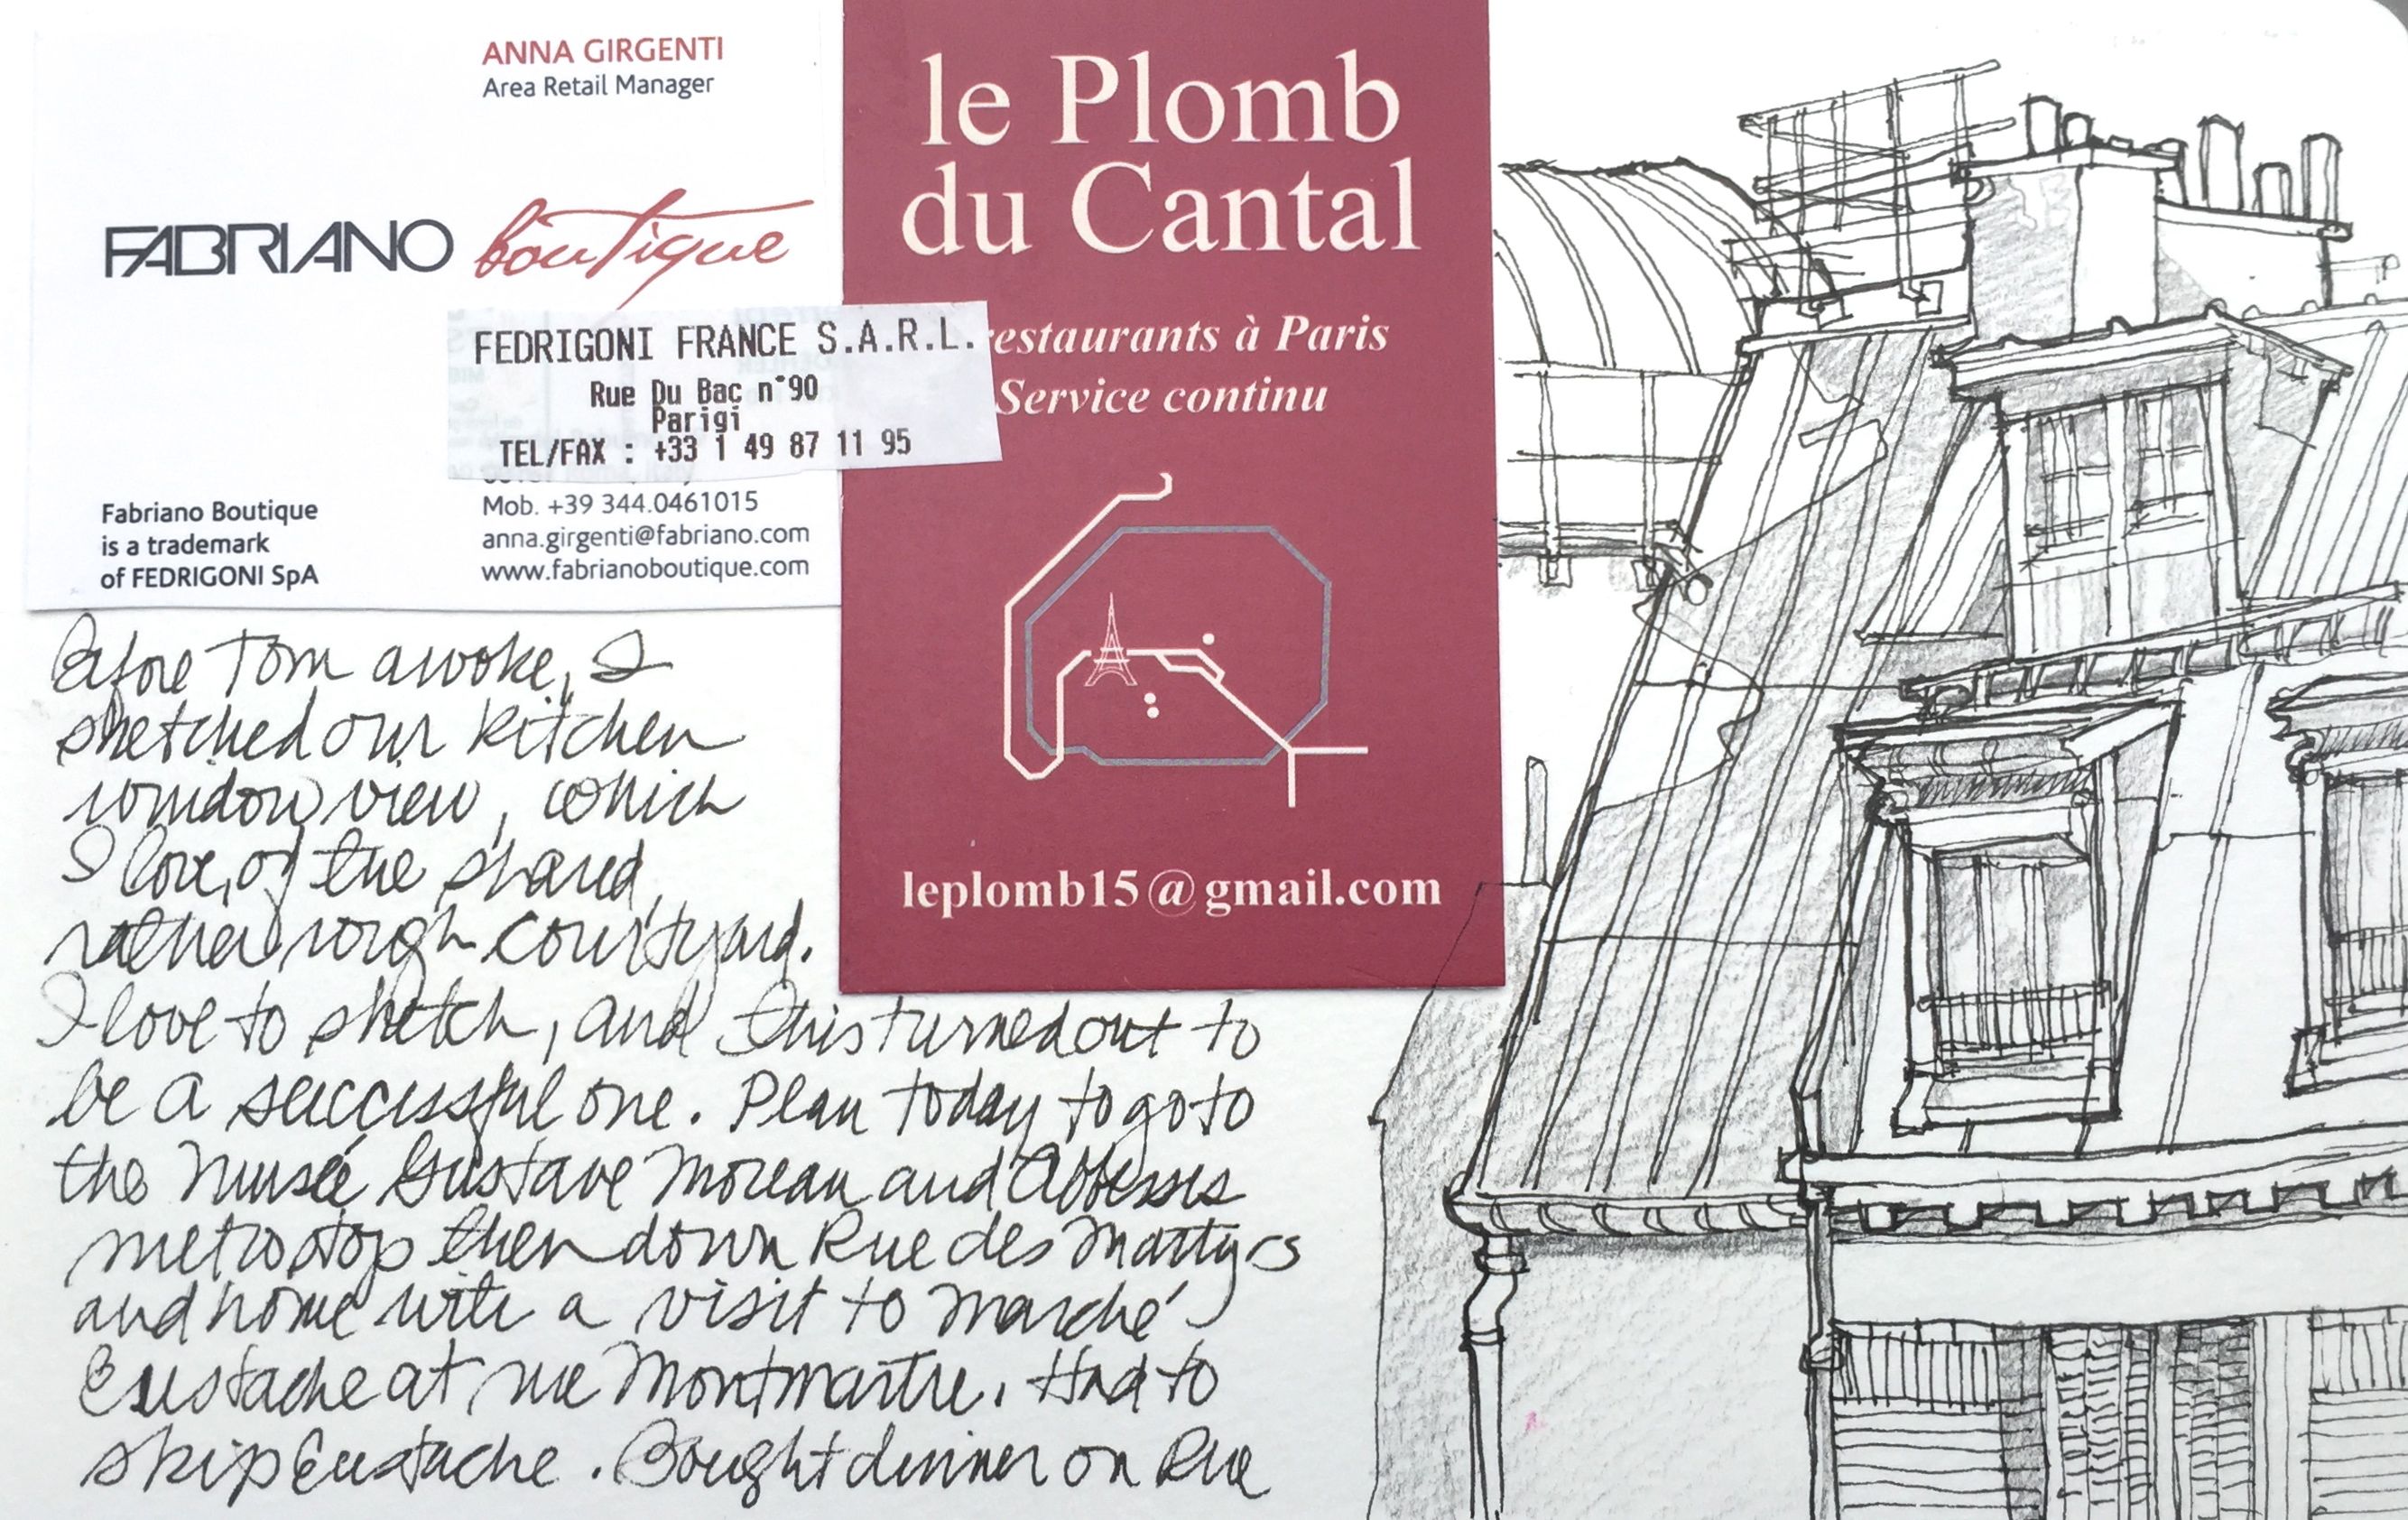 ANNA GIRGENTI
Area Retail Manager
FABRIANO boutique
FEDRIGONI FRANCE S.A.R.L.
Rue Du Bac n°90
Parigi
TEL/FAX : +33 1 49 87 11 95
Mob. +39 344.0461015
anna.girgenti@fabriano.com
www.fabrianoboutique.com
Fabriano Boutique
is a trademark
of FEDRIGONI SpA
le Plomb
du Cantal
restaurants à Paris
Service continu
leplomb15@gmail.com
Before Tom awoke, I
sketched our kitchen
window view, which
I love, of the shared,
rather rough courtyard.
I love to sketch, and this turned out to
be a successful one. Plan today to go to
the Museé Gustave Moreau and Abbesses
metro stop then down Rue des Martyrs
and home with a visit to Marché
Eustache at rue Montmartre. Had to
skip Eustache. Bought dinner on Rue